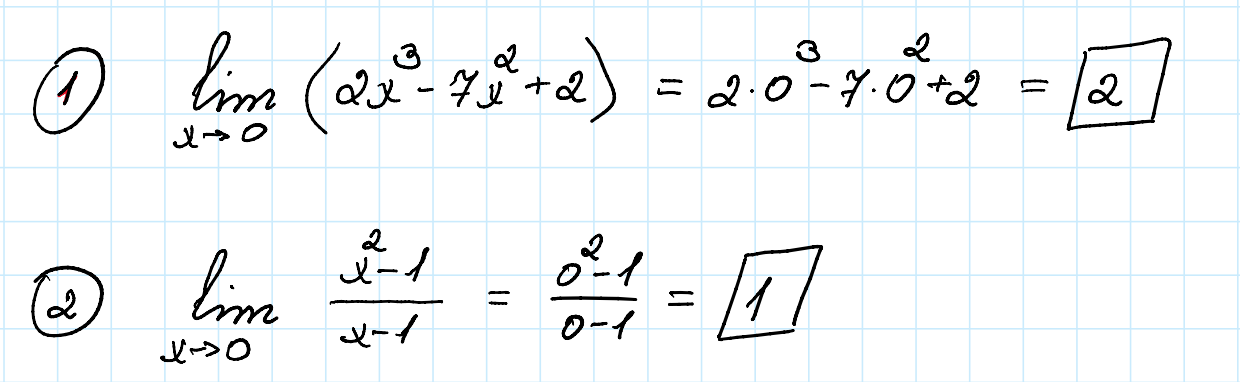 ① lim x→0 (2x³ - 7x² + 2) = 2·0³ - 7·0² + 2 = 2
② lim x→0 (x² - 1)/(x - 1) = (0² - 1)/(0 - 1) = 1